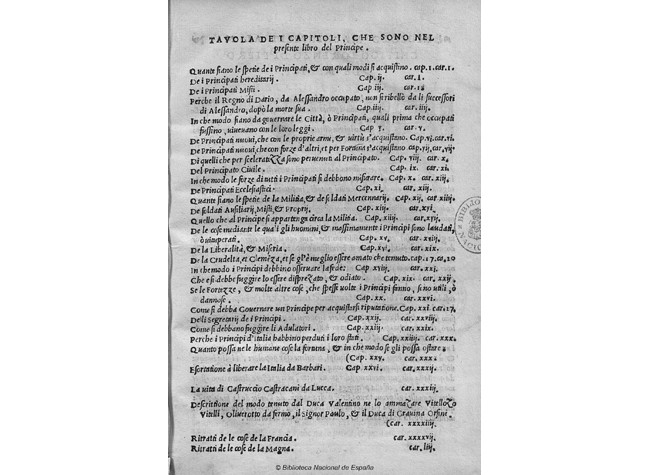 TAVOLA DE I CAPITOLI, CHE SONO NEL
presente libro del Principe.
Quante siano le spetie de i Principati, & con quali modi si acquistino. cap. 1. car. 1.
De i Principati hereditarij. Cap. ij. car. 1.
De i Principati Misti. Cap. iij. car. 12
Perche il Regno di Dario, da Alessandro occupato, non si ribellò da li successori
di Alessandro, dopò la morte sua. Cap. iiij. car. iiij.
In che modo siano da governare le Città, ò Principati, quali prima che occupati
fussino, viueuano con le loro leggi. Cap v. car. v.
De Principati nuoui, che con le proprie armi, & virtù s'acquistano. Cap. vi. car. vi.
De Principati nuoui, che con forze d'altri, et per Fortuna s'acquistano cap. vij, car, vij.
Di quelli che per sceleratezza sono peruenuti al Principato. Cap. viij. car. x.
Del Principato Ciuile. Cap. ix. car. xi.
In che modo le forze di tutti i Principati si debbono misurare. Cap. x. car. xij.
De Principati Ecclesiastici. Cap. xi. car. xiij.
Quante siano le spetie de la Militia, & de soldati Mercennarij. Cap. xij, car xiiij.
De soldati Ausiliarij, Misti, & Proprij. Cap. xiij. car. xvi.
Quello che al Principe si appartenga circa la Militia. Cap. xiiij. car. xvij.
De le cose mediante le quali gli huomini, & massimamente i Principi sono laudati,
ò uituperati. Cap. xv. car. xviij.
De la Liberalità, & Miseria. Cap. xvi. car. xix.
De la Crudelta, et Clemēza, et se gl'è meglio essere amato che temuto. cap. 17. ca, 20
In che modo i Principi debbino osseruare la fede: Cap. xviij. car. xxi.
Che e si debbe fuggire lo essere disprezato, & odiato. Cap. xix. car. xxij.
Se le Fortezze, & molte altre cose, che spesse uolte i Principi fanno, sono utili, ò
dannose. Cap. xx. car. xxvi.
Come si debba Gouernare un Principe per acquistarsi riputatione. Cap. xxi car. 27.
Deli Segretarij de i Principi. Cap. xxij. car. xxviij.
Come si debbano fuggire li Adulatori. Cap. xxiij. car. xxix.
Perche i Principi d'Italia habbino perduti i loro stati. Cap. xxiiij. car. xxx.
Quanto possa ne le humane cose la fortuna, & in che modo se gli possa ostare.
(Cap. xxv. car. xxx.
Esortatione à liberare la Italia da Barbari. Cap. xxvi. car. xxxij.
La uita di Castruccio Castracani da Lucca. car. xxxiij.
Descrittione del modo tenuto dal Duca Valentino ne lo ammazare Vitellozo
Vitelli, Oliuerotto da fermo, il Signor Paulo, & il Duca di Grauina Orsini.
(car. xxxxiij.
Ritratti de le cose de la Francia. car. xxxxvij.
Ritratti de le cose de la Magna. car. liij.
© Biblioteca Nacional de España